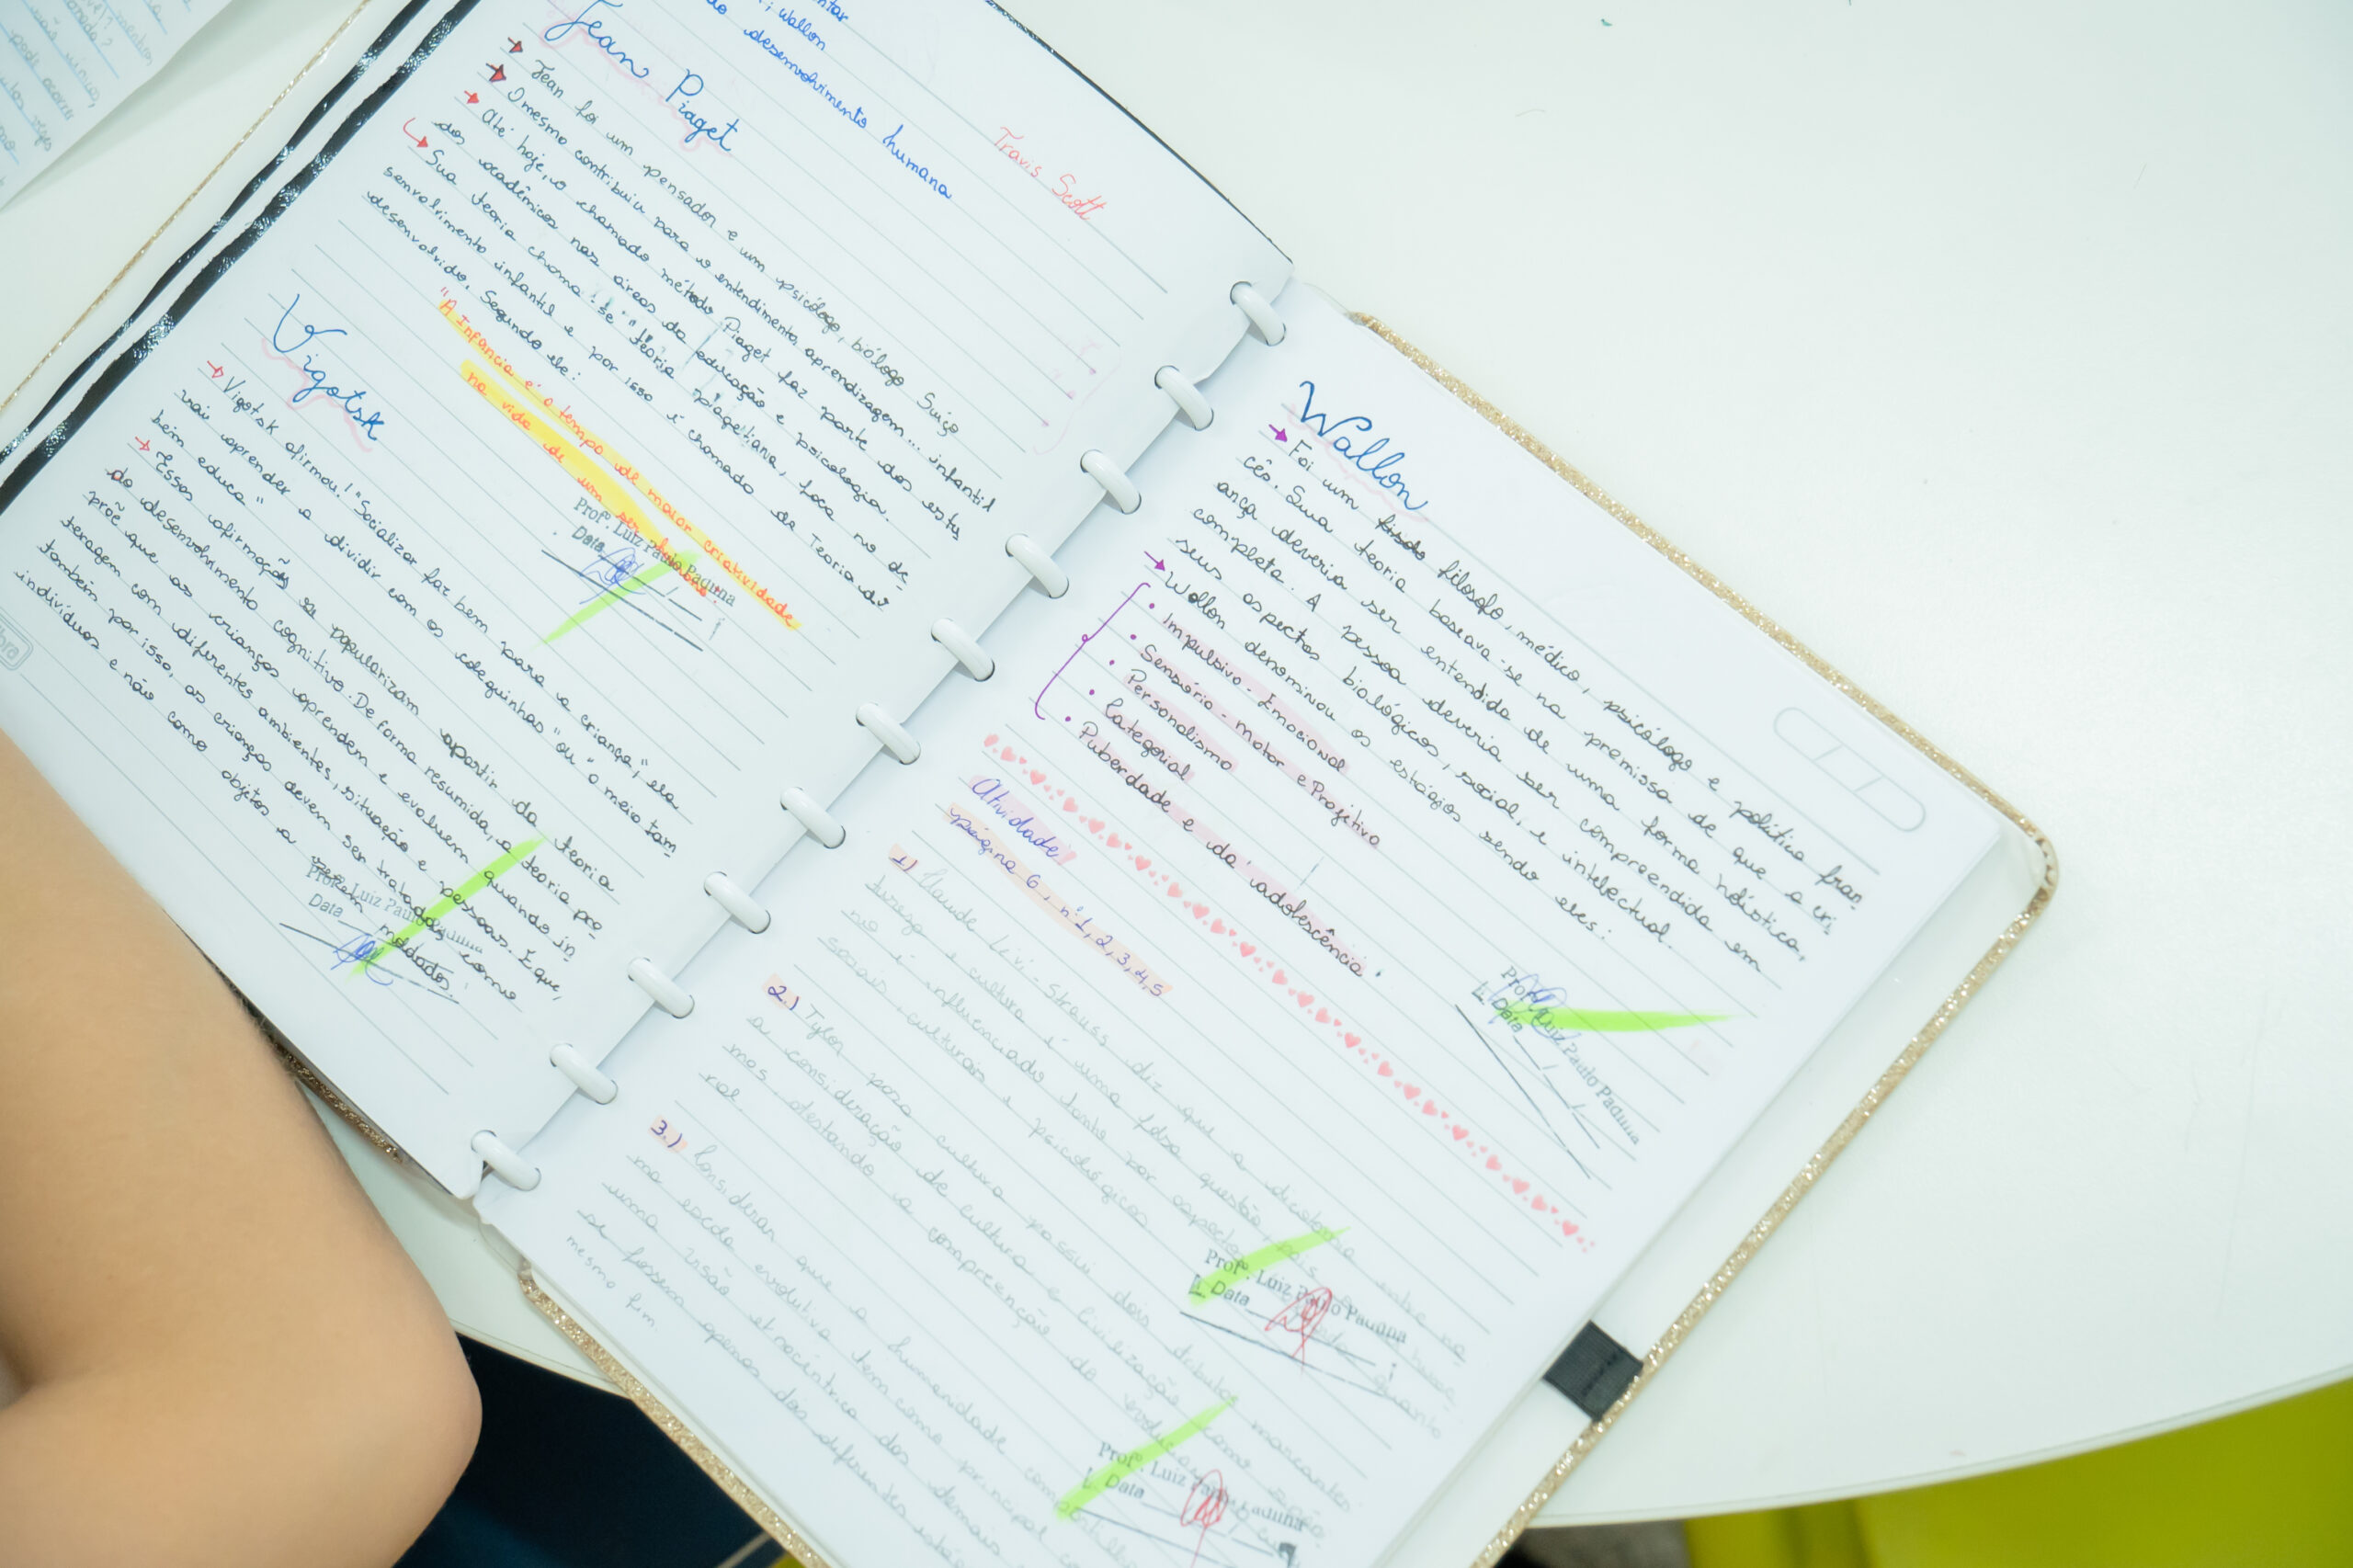 ; Wallon
desenvolvimento humano
Travis Scott
Jean Piaget
Jean foi um pensador e um psicólogo, biólogo Suiço
O mesmo contribuiu para o entendimento, aprendizagem... infantil
Até hoje, o chamado método Piaget faz parte dos estu
dos acadêmicos nas áreas da educação e psicologia.
Sua teoria chama-se "teoria piagetiana, foca no de
senvolvimento infantil e por isso é chamado de Teoria do
desenvolvido. Segundo ele:
"A Infância é o tempo de maior criatividade
na vida de um ser humano."
Prof°. Luiz Paulo Paduna
Data
Vigotsk
Vigotsk afirmou! "Socializar faz bem para a criança", ela
vai aprender a dividir com os coleguinhas "ou "o meio tam
bém educa"
Essas afirmações se popularizam apartir da teoria
do desenvolvimento cognitivo. De forma resumida, a teoria pro
põe que as crianças aprendem e evoluem quando in
teragem com diferentes ambientes, situação e pessoas. E que,
também por isso, as crianças devem ser tratadas como
indivíduos e não como objetos a serem moldados.
Prof°. Luiz Paulo Paduna
Data
Wallon
Foi um filósofo, médico, psicólogo e política fran
cês. Sua teoria baseava-se na premissa de que a cri
ança deveria ser entendida de uma forma holística,
completa. A pessoa deveria ser compreendida em
seus aspectos biológicos, social, e intelectual.
Wallon denominou os estágios sendo eles:
• Impulsivo - Emocional
• Sensório - motor e Projetivo
• Personalismo
• Categorial
• Puberdade e da adolescência.
Prof°. Luiz Paulo Paduna
Data
Atividade
página 6, n°1, 2, 3, 4, 5
1.) Claude Lévi-Strauss diz que a dicotomia entre na
tureza e cultura é uma falsa questão, pois o ser huma
no é influenciado tanto por aspectos quanto
sociais, culturais e psicológicos
Prof°. Luiz Paulo Paduna
Data
2.) Tylor para cultura possui dois atributos marcantes
a consideração de cultura e civilização como sinôni
mos, atestando a compreenção da evolução cultu
ral.
Prof°. Luiz Paulo Paduna
Data
3.) Considerar que a humanidade
ma escala evolutiva tem como principal
uma visão etnocêntrica das demais
se fossem apenas dos diferentes
mesmo fim.